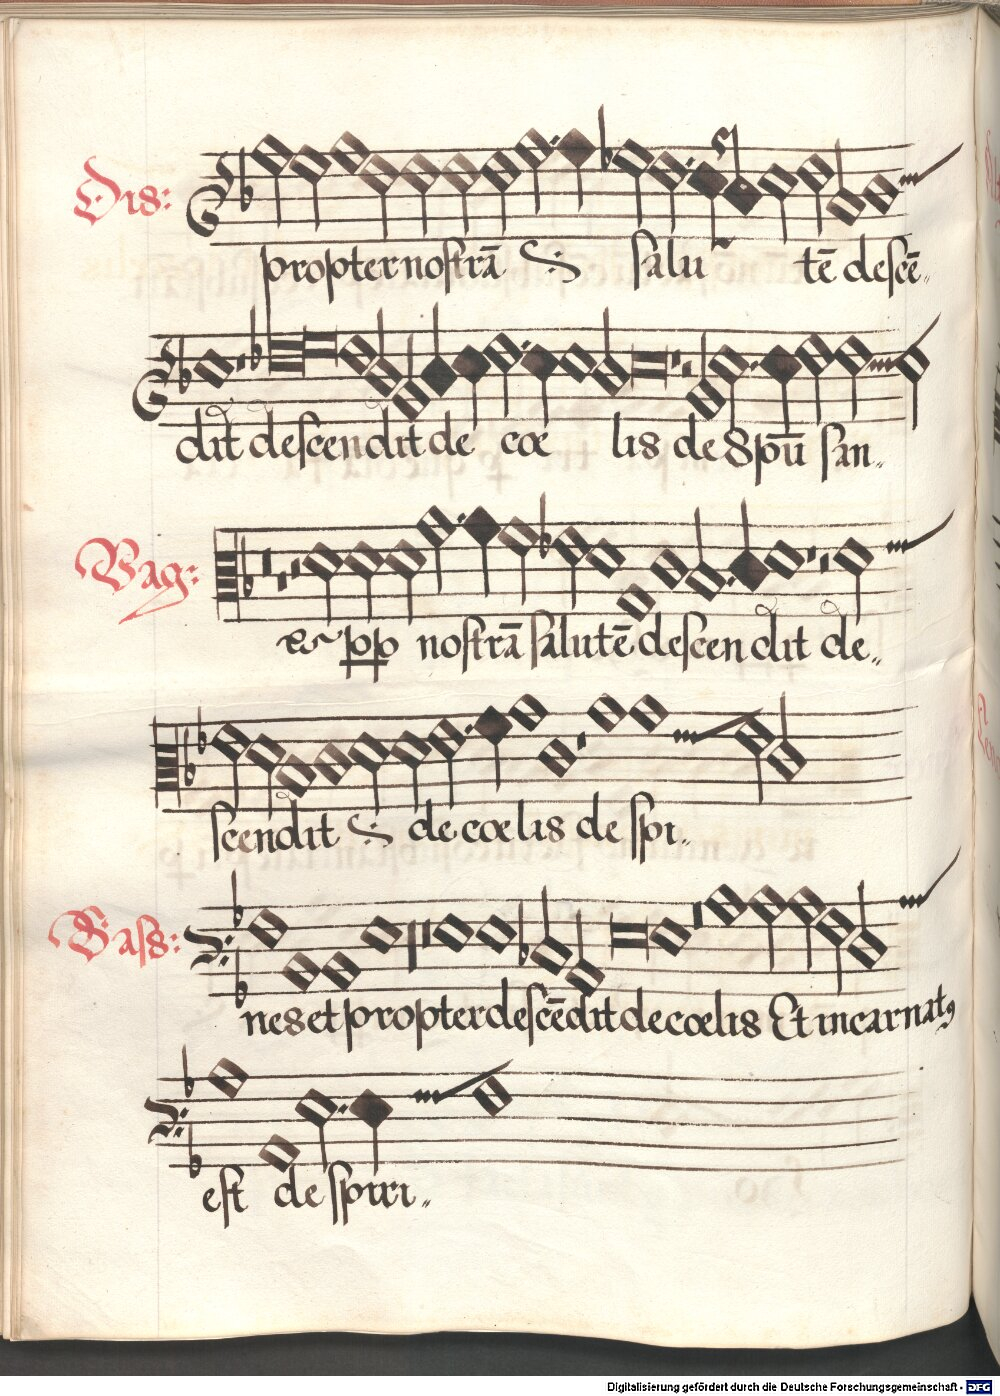 Dis:
propter nostrā salu tē descē
dit descendit de cœ lis de Spū san
Vag:
et pp nostrā salutē descendit de
scendit de cœlis de spi
Bass:
nes et propter descēdit de cœlis Et incarnatꝰ
est de spiri
Digitalisierung gefördert durch die Deutsche Forschungsgemeinschaft - DFG